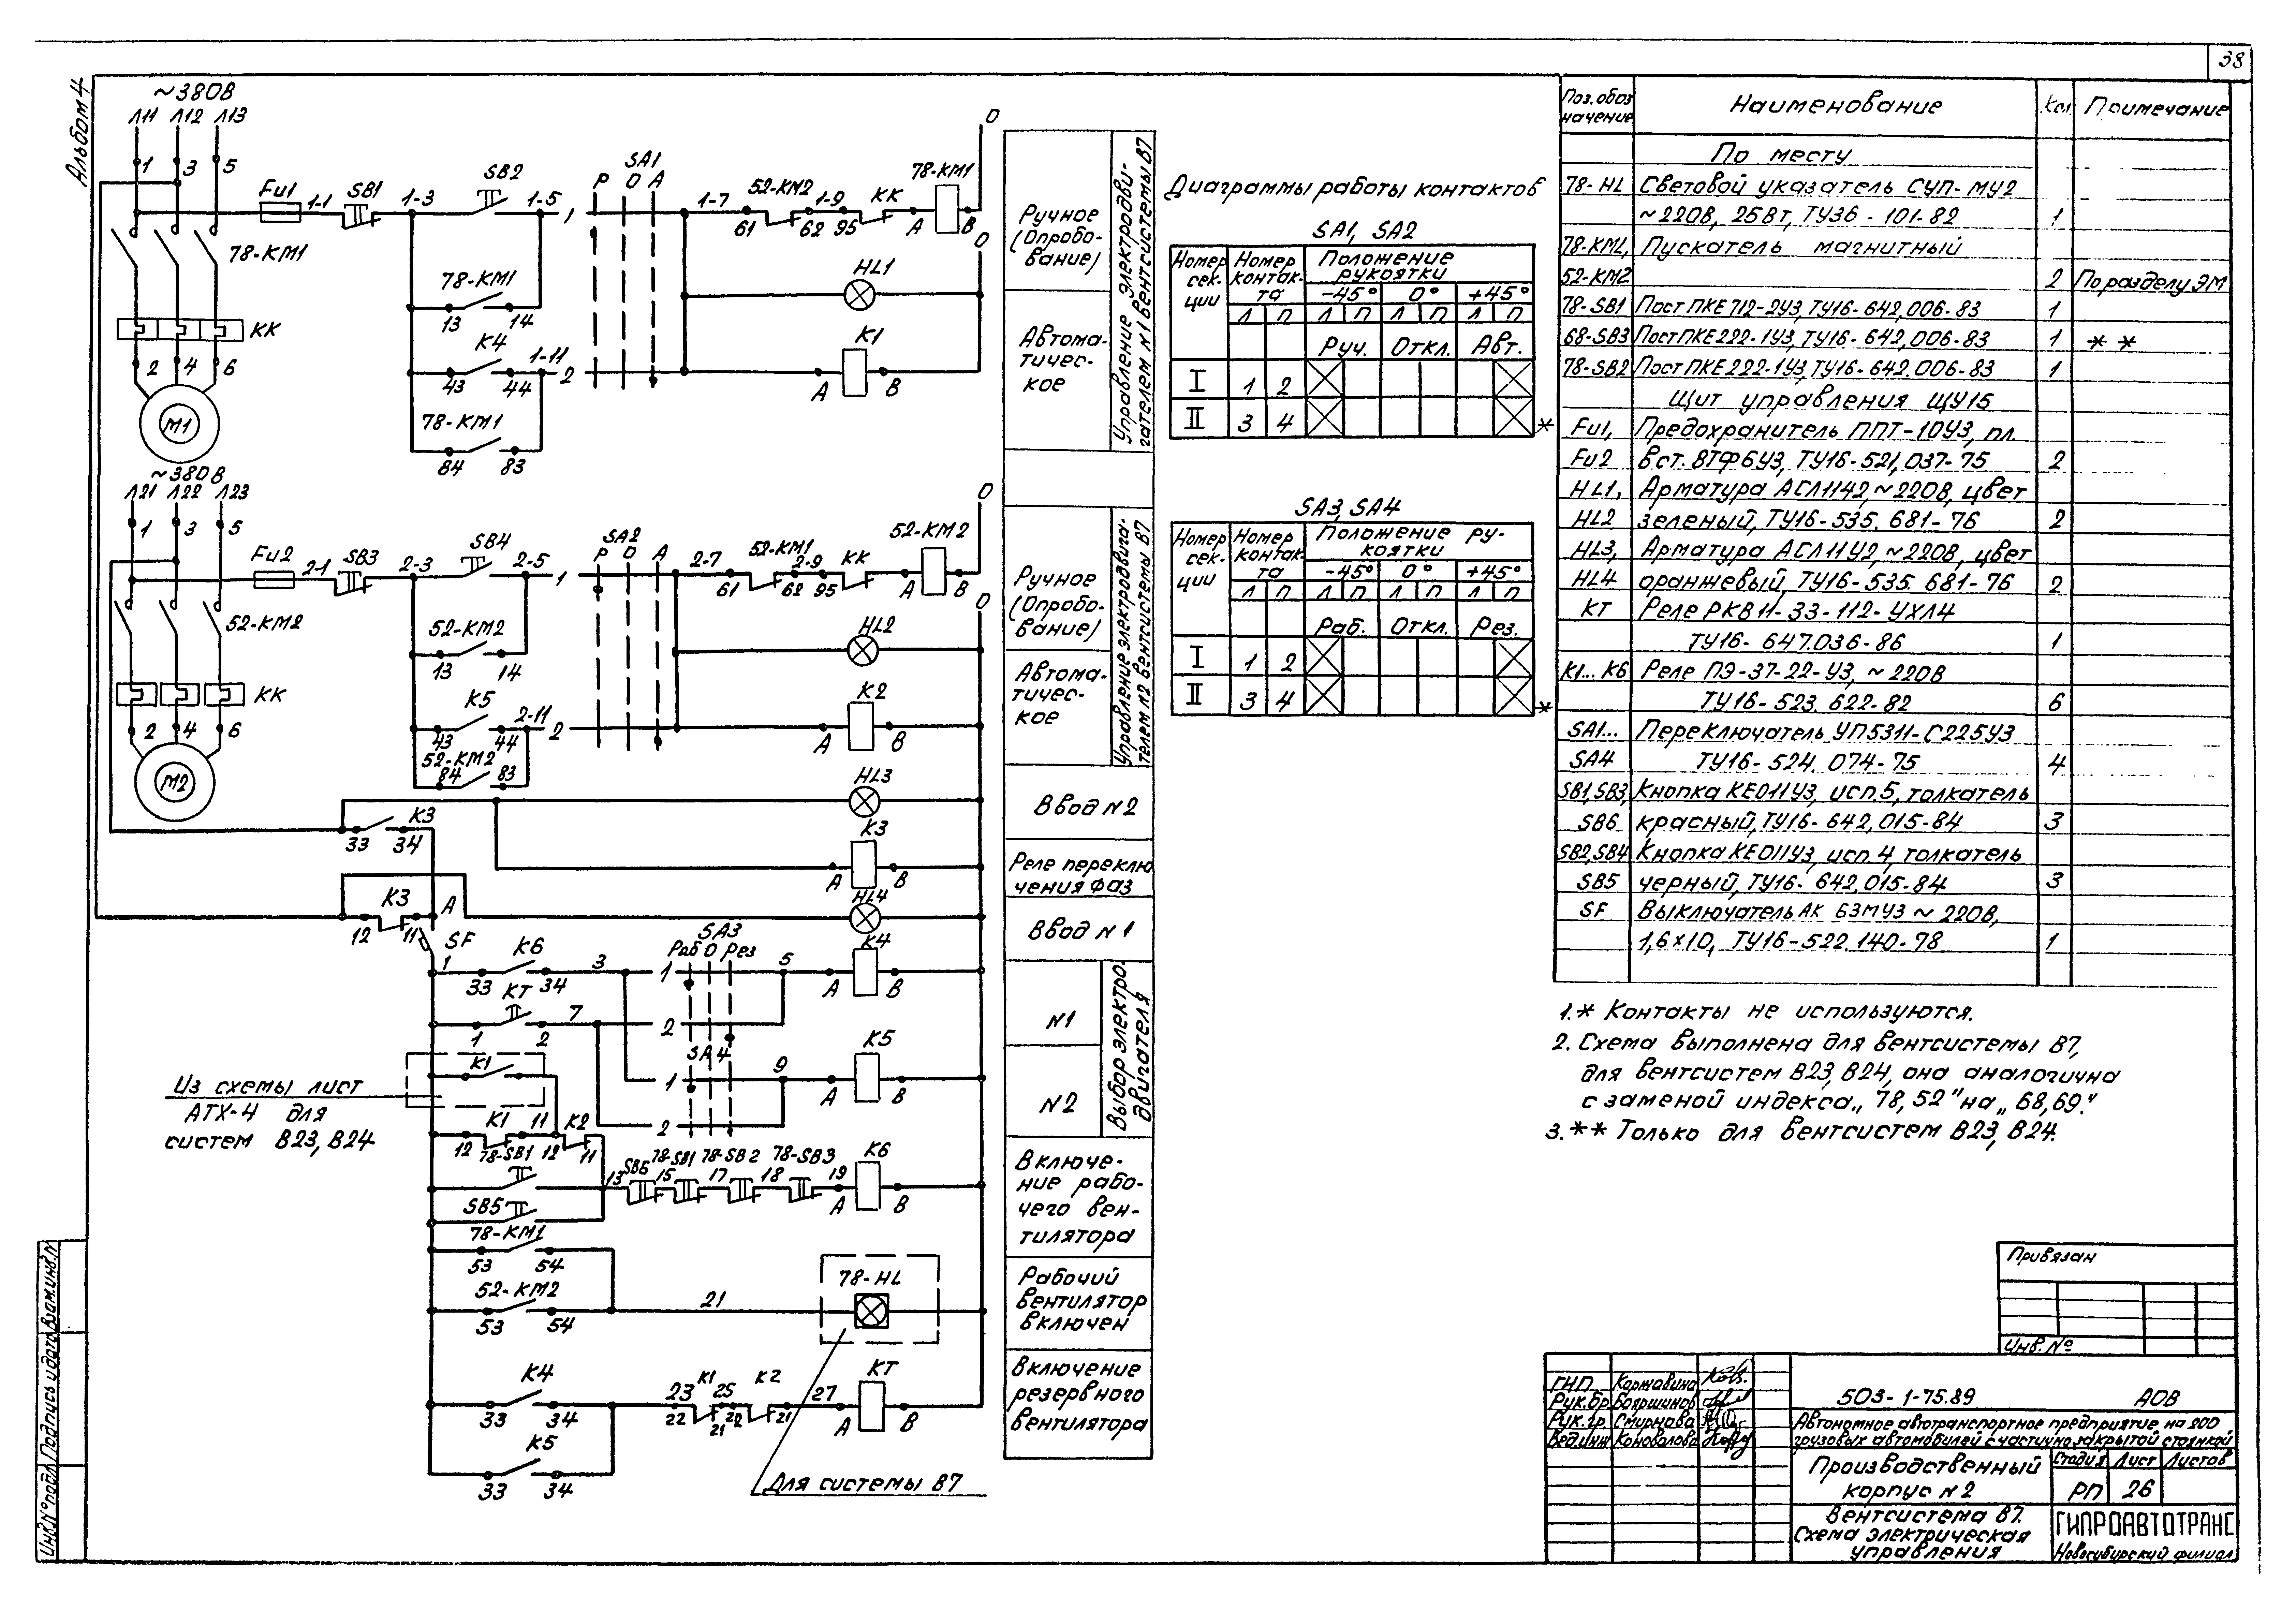 38
Альбом 4
~380В
Л11 Л12 Л13
1 3 5
Fu1 1-1 SB1 1-3 SB2 1-5 1 SA1 Р О А 1-7 52-КМ2 1-9 КК 78-КМ1 0
61 62 95 А В
0
78-КМ1
78-КМ1
13 14
HL1
КК
К4 1-11
43 44 2
К1
А В
2 4 6
М1
78-КМ1
84 83
~380В
Л21 Л22 Л23
1 3 5
Fu2 2-1 SB3 2-3 SB4 2-5 1 SA2 Р О А 2-7 52-КМ1 2-9 КК 52-КМ2 0
61 62 95 А В
0
52-КМ2
52-КМ2
13 14
HL2
КК
К5 2-11
43 44 2
К2
А В
2 4 6
М2
52-КМ2
84 83
HL3
К3
33 34
К3
А В
К3
12 11 А
HL4
SF
1 К6 3 1 SA3 Раб О Рез 5 К4
33 34 А В
КТ 7
1 2 2
К1
SA4
1 9 К5
А В
2
Из схемы лист
АТХ-4 для
систем В23, В24
К1 11 К2
12 12 11
78-SB1
13 SB6 15 78-SB1 17 78-SB2 18 78-SB3 19 К6
А В
SB5
78-КМ1
53 54
52-КМ2
53 54
21
78-HL
К4
33 34
23 К1 25 К2 27 КТ
22 21 22 21 А В
К5
33 34
Для системы В7
Ручное
(Опробо-
вание)
Автома-
тичес-
кое
Управление электродви-
гателем N1 вентсистемы В7
Ручное
(Опробо-
вание)
Автома-
тичес-
кое
Управление электродвига-
телем N2 вентсистемы В7
Ввод N2
Реле переклю
чения фаз
Ввод N1
N1
N2
Выбор электро-
двигателя
Включе-
ние рабо-
чего вен-
тилятора
Рабочий
вентилятор
включен
Включение
резервного
вентилятора
Диаграммы работы контактов
SA1, SA2
Номер сек-ции Номер контак-та Положение рукоятки
-45° 0° +45°
Л П Л П Л П Л П
Руч. Откл. Авт.
I 1 2
II 3 4 *
SA3, SA4
Номер сек-ции Номер контак-та Положение ру-коятки
-45° 0° +45°
Л П Л П Л П Л П
Раб. Откл. Рез.
I 1 2
II 3 4 *
Поз. обоз начение Наименование Кол Примечание
По месту
78-HL Световой указатель СУП-МУ2
~220В, 25Вт, ТУ36-101-82 1
78-КМ1, Пускатель магнитный
52-КМ2 2 По разделу ЭМ
78-SB1 Пост ПКЕ 712-2У3, ТУ16-642,006-83 1
68-SB3 Пост ПКЕ 222-1У3, ТУ16-642,006-83 1 **
78-SB2 Пост ПКЕ 222-1У3, ТУ16-642.006-83 1
Щит управления ЩУ15
Fu1, Предохранитель ППТ-10У3, пл.
Fu2 вст. ВТФ6У3, ТУ16-521,037-75 2
HL1, Арматура АСЛ1142, ~220В, цвет
HL2 зеленый, ТУ16-535.681-76 2
HL3, Арматура АСЛ11У2, ~220В, цвет
HL4 оранжевый, ТУ16-535.681-76 2
КТ Реле РКВ11-33-112-УХЛ4
ТУ16-647.036-86 1
К1...К6 Реле ПЭ-37-22-У3, ~220В
ТУ16-523.622-82 6
SA1... Переключатель УП5311-С225У3
SA4 ТУ16-524.074-75 4
SB1, SB3, Кнопка КЕ011У3, исп.5, толкатель
SB6 красный, ТУ16-642,015-84 3
SB2, SB4 Кнопка КЕ011У3, исп.4, толкатель
SB5 черный, ТУ16-642,015-84 3
SF Выключатель АК Б3МУ3 ~220В,
1,6х10, ТУ16-522.140-78 1
1.* Контакты не используются.
2. Схема выполнена для вентсистемы В7,
для вентсистем В23, В24, она аналогична
с заменой индекса „78,52" на „68,69."
3.** Только для вентсистем В23, В24.
Привязан
Инв. №
ГИП Коржавина
Рук.бр. Бояршинов
Рук.гр. Смирнова
Вед.инж Коновалова
503-1-75.89 АОВ
Автономное автотранспортное предприятие на 200
грузовых автомобилей с частично закрытой стоянкой
Производственный
корпус N2
Стадия Лист Листов
РП 26
Вентсистема В7.
Схема электрическая
управления
ГИПРОАВТОТРАНС
Новосибирский филиал
Инв.N°подл Подпись и дата Взам.инв.N